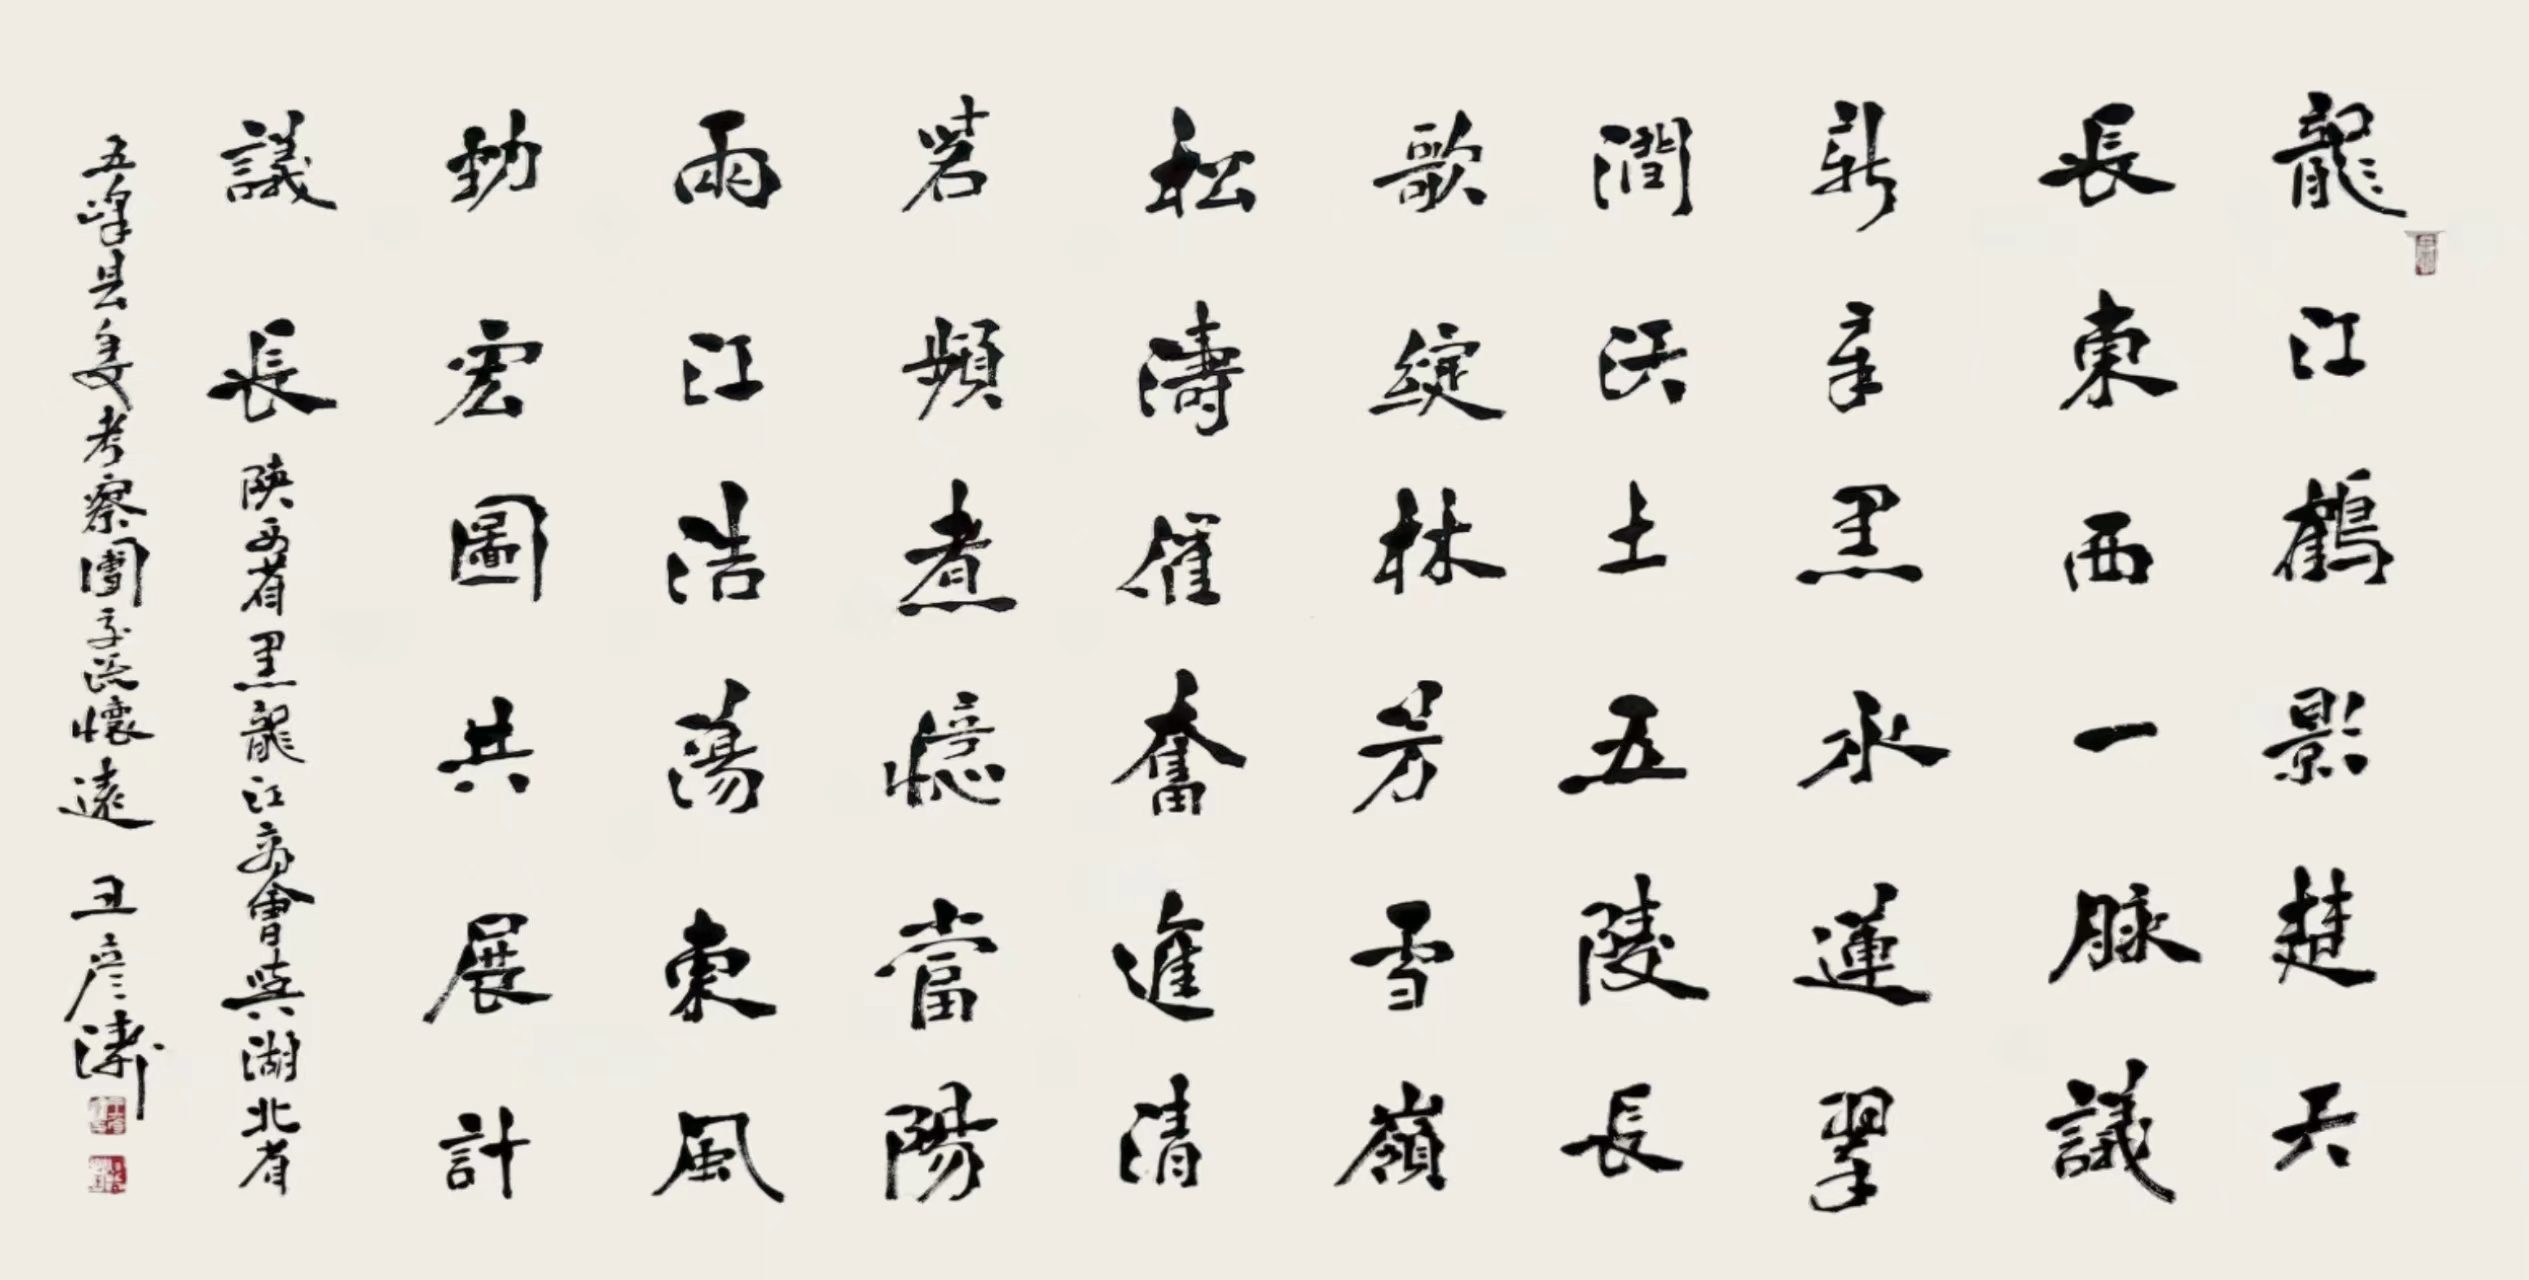 龍江鶴影楚天
長東西一脉議
新章黑水蓮翠
潤沃土五陵長
歌綻林芳雪嶺
松濤催奮進清
茗頻煮憶當陽
兩江浩蕩東風
勁宏圖共展計
議長 陝西省黑龍江商會與湖北省
五峰县委考察團交流懷遠 丑彦濤